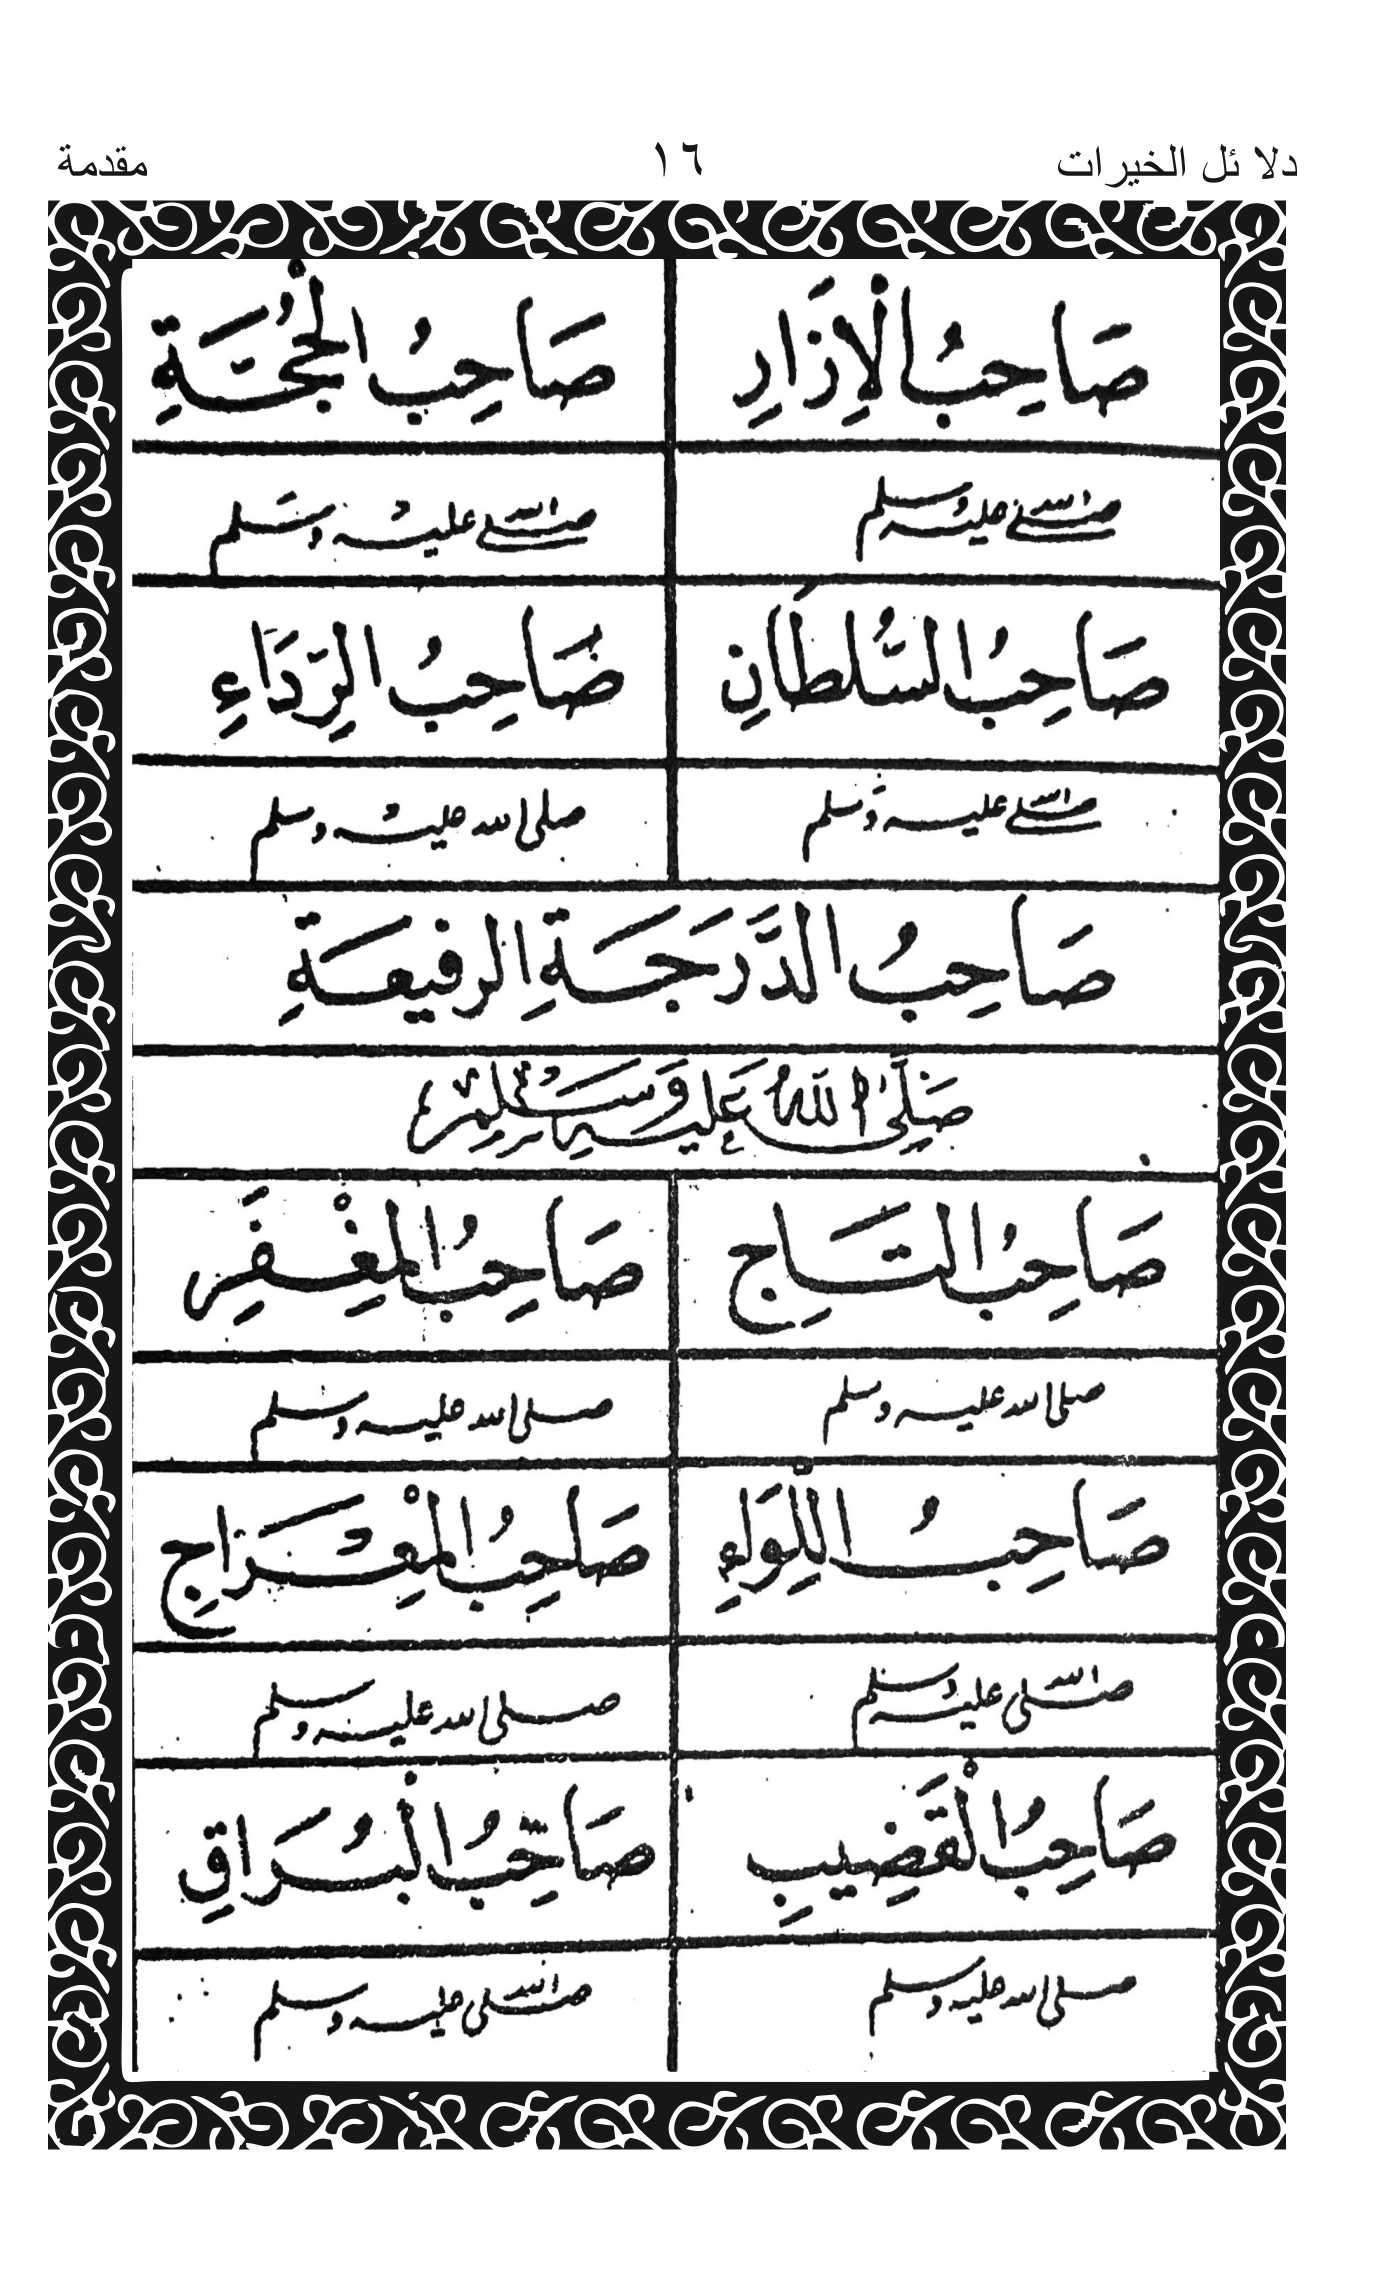 دلا ئل الخيرات ١٦ مقدمة
صَاحِبُ الْاِزَارِ صَاحِبُ الْحُجَّةِ
صلى الله عليه وسلم صلى الله عليه وسلم
صَاحِبُ السُّلْطَانِ صَاحِبُ الرِّدَاءِ
صلى الله عليه وسلم صلى الله عليه وسلم
صَاحِبُ الدَّرَجَةِ الرفيعَةِ
صَلَّى اللهُ عَلَيْهِ وَسَلَّمَ
صَاحِبُ التَّاجِ صَاحِبُ الْمِغْفَرِ
صلى الله عليه وسلم صلى الله عليه وسلم
صَاحِبُ اللِّوَاءِ صَاحِبُ الْمِعْرَاجِ
صلى الله عليه وسلم صلى الله عليه وسلم
صَاحِبُ الْقَضِيبِ صَاحِبُ الْبُرَاقِ
صلى الله عليه وسلم صلى الله عليه وسلم